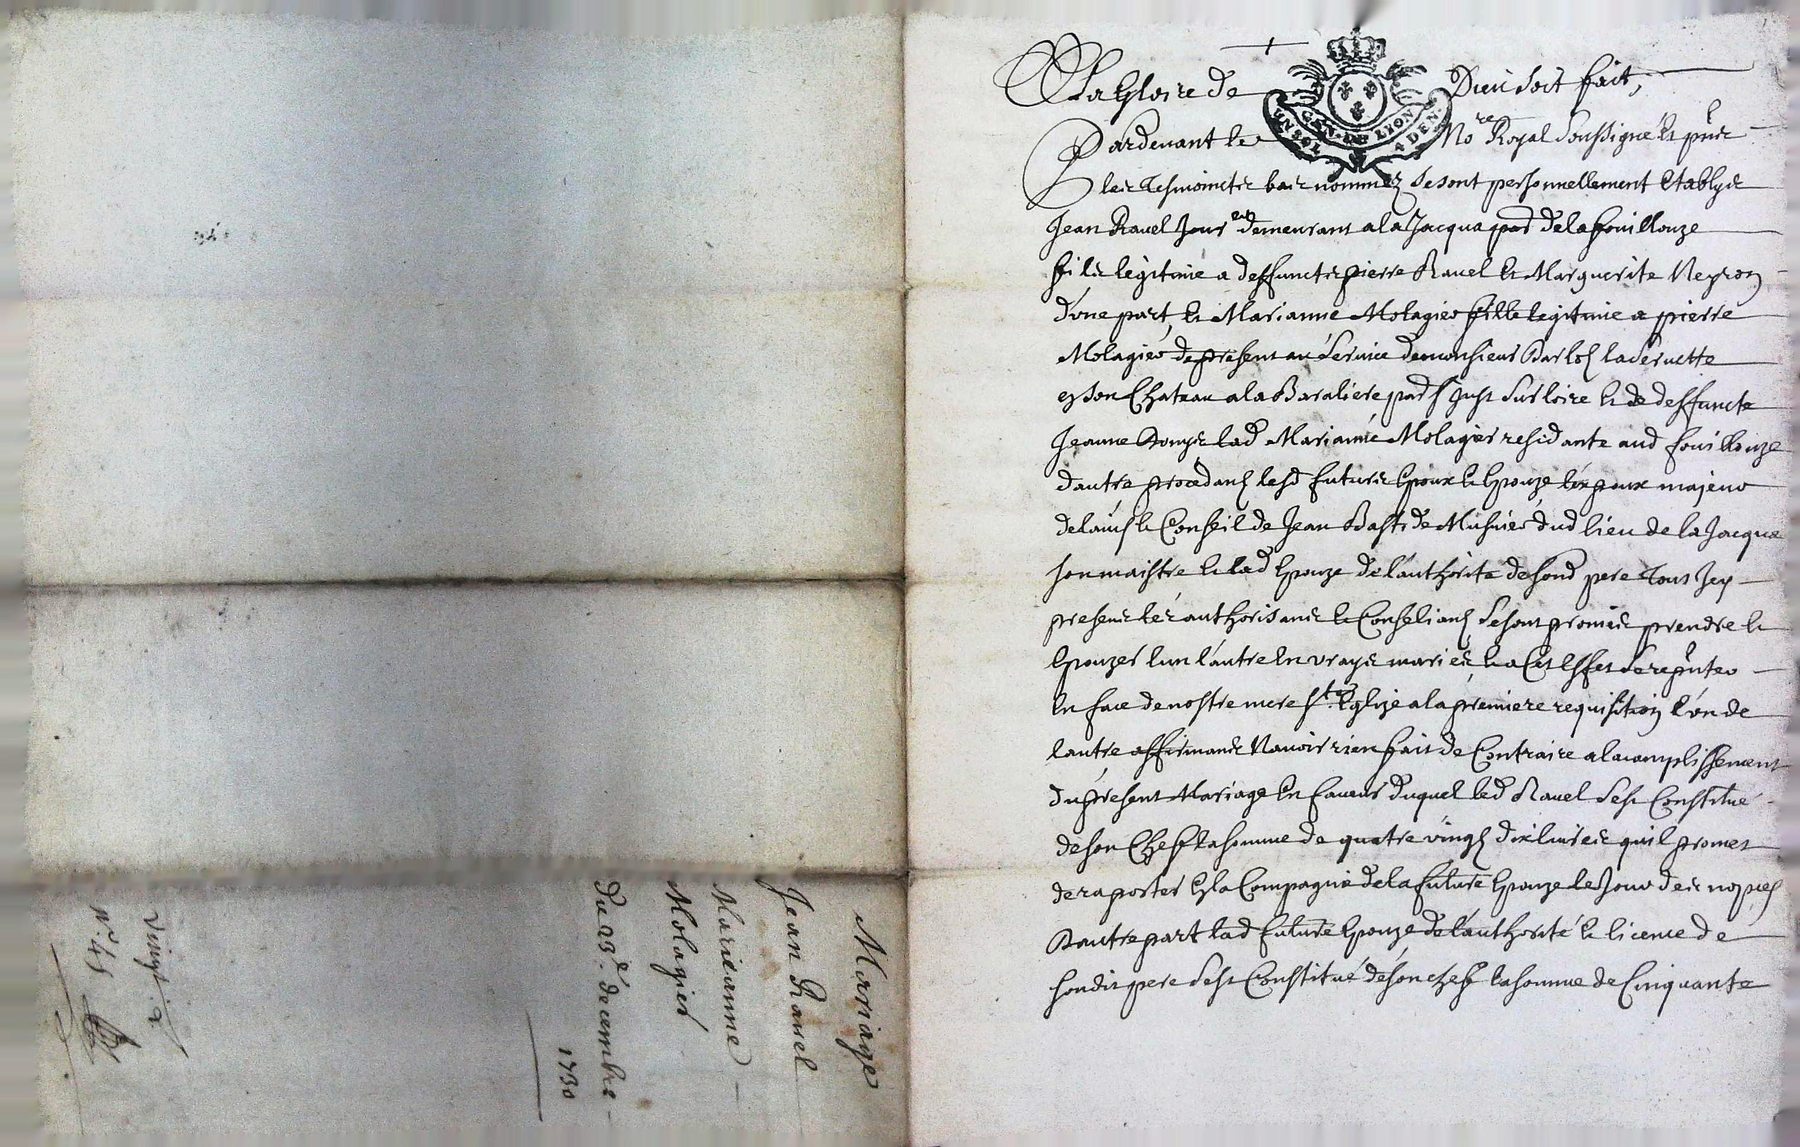 A La Gloire de Dieu soit fait,
GEN. DE LION
Pardevant le No.re Royal soussigné et pñts
les tesmoincts bas nommez se sont personnellement establys
Jean Ravel Jour.er demeurant a la Jacqua par de la fouillouze
fils legitime a deffuncts pierre Ravel et Marguerite Neyron
d'une part, et Marianne Molagier fille legitime a pierre
Molagier de present au service de monsieur
en son Chateau a la Baraliere par St Just sur loire et de deffuncte
Jeanne lad Marianne Molagier residante aud fouillouze
d'autre procedants lesd futurs Epoux et Epouze lépoux majeur
de lavis et Conseil de Jean Bapt de Musnier dud lieu de la Jacqua
son maistre et lad Epouze de lauthorité de sond pere tous Icy
presents les authorisants et Conseliants se sont promis prendre et
Epouzer l'un l'autre en vrays mariés, et a Cet Effet se repñter
en face de nostre mere s.te Eglize a la premiere requisition l'un de
lautre affirmants Navoir rien fait de Contraire a lacomplissement
du present Mariage En faveur duquel led Ravel s'est Constitué
de son Chef la somme de quatre vingts dix livres quil promet
de raporter en la Compagnie de la future Epouze le Jour des nopces
Dautre part lad future Epouze de l'authorité et licence de
sondit pere s'est Constitué de son chef la somme de Cinquante
Mariage
Jean Ravel
Marianne
Molagier
Du 23.e décembre
1730
vingt. 2
n.o 45